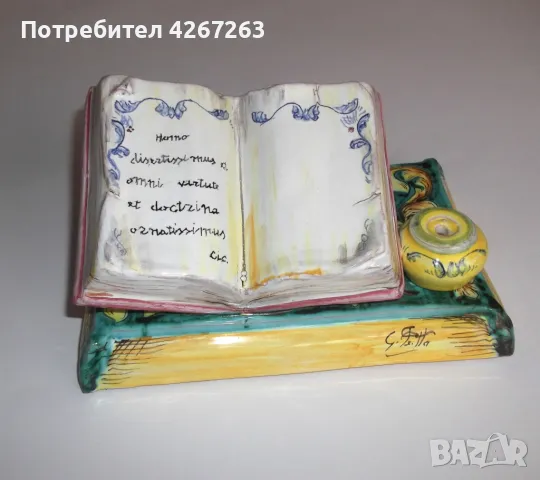 Потребител 4267263
Homo
disertissimus
omni vertute
et doctrina
ornatissimus
Cic.
BAZAR